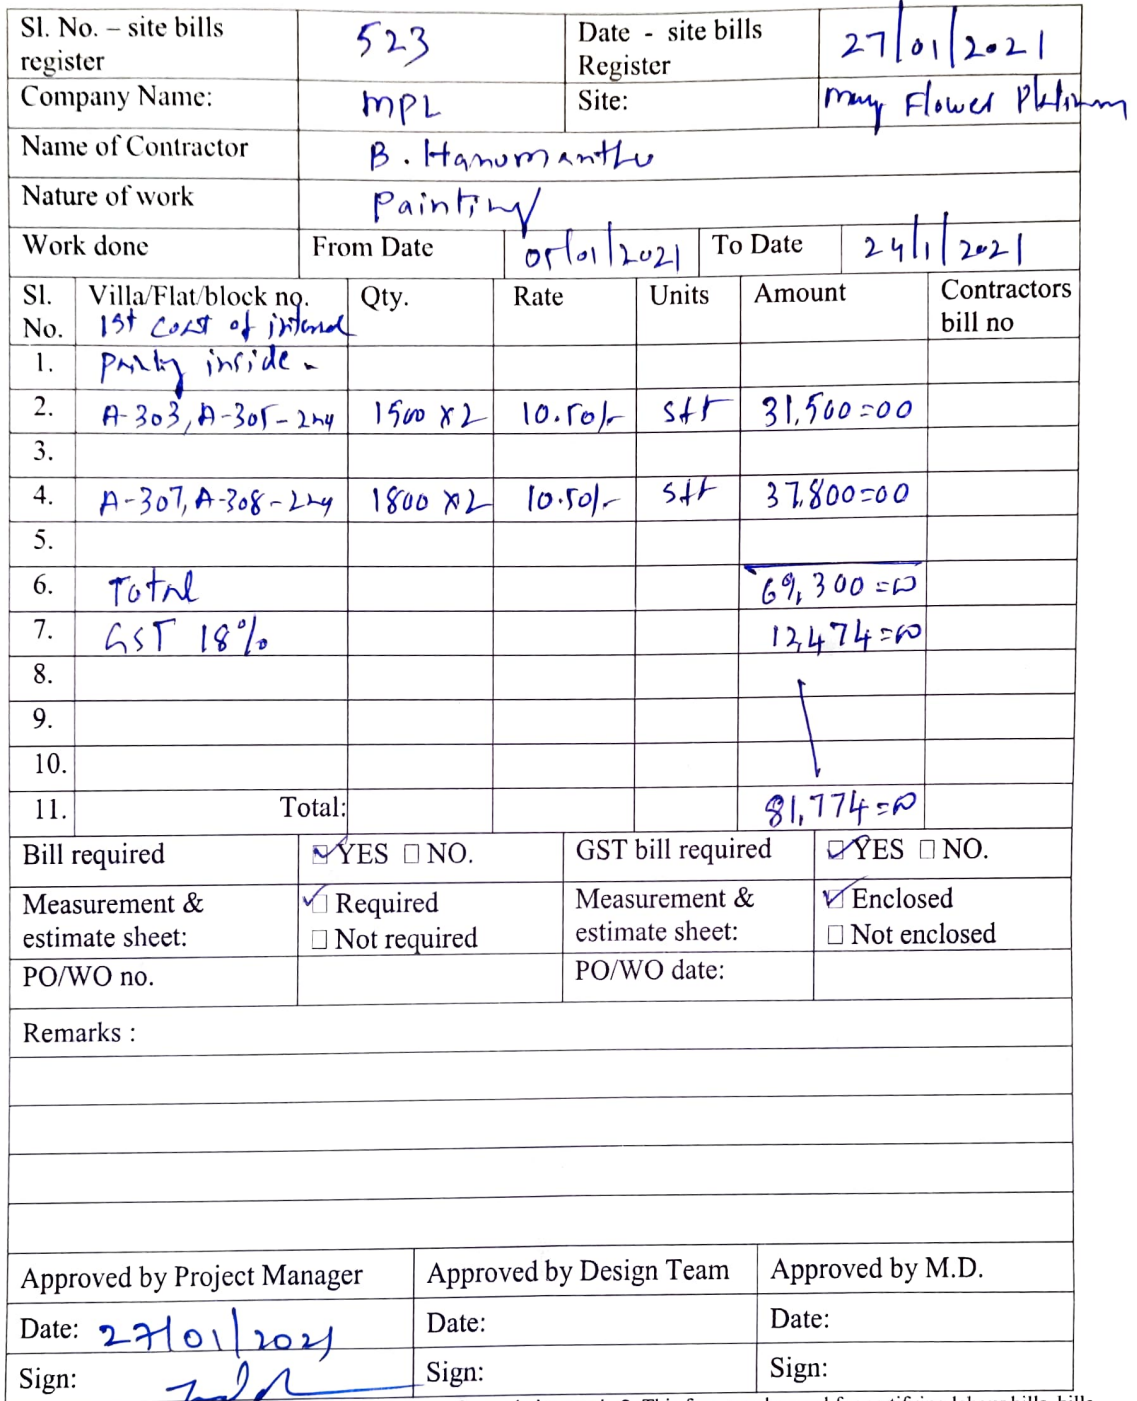 Sl. No. – site bills register 523 Date - site bills Register 27/01/2021
Company Name: MPL Site: may Flower Platinum
Name of Contractor B. Hanumanthu
Nature of work Painting
Work done From Date 05/01/2021 To Date 24/1/2021
Sl. No. Villa/Flat/block no. Qty. Rate Units Amount Contractors bill no
1st coat of internal
1. inside -
2. A-303, A-305- 1500 x 2 10.50/- sft 31,500=00
3.
4. A-307, A-308- 1800 x 2 10.50/- sft 37,800=00
5.
6. Total 69,300=00
7. GST 18% 12,474=00
8.
9.
10.
11. Total: 81,774=00
Bill required YES NO. GST bill required YES NO.
Measurement & estimate sheet: Required Not required Measurement & estimate sheet: Enclosed Not enclosed
PO/WO no. PO/WO date:
Remarks :
Approved by Project Manager Approved by Design Team Approved by M.D.
Date: 27/01/2021 Date: Date:
Sign: Sign: Sign: